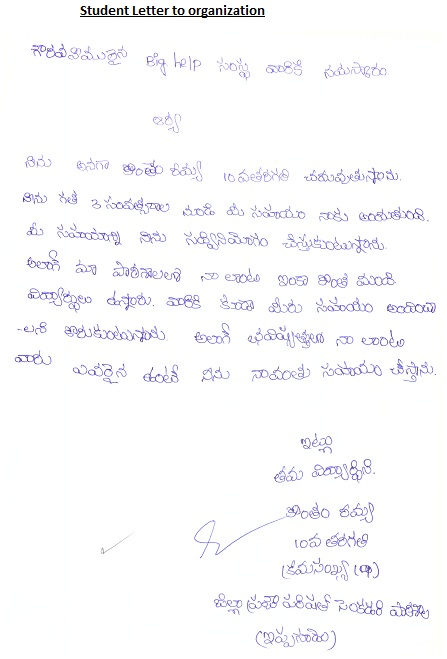 Student Letter to organization
గౌరవనీయులైన Big help సంస్థ వారికి నమస్కారం
ఆర్యా
నేను అనగా కాంతం రమ్య 10వతరగతి చదువుతున్నాను.
నేను గత 3 సంవత్సరాల నుండి మీ సహాయం నాకు అందుతుంది.
మీ సహాయాన్ని నేను సద్వినియోగం చేస్తుకుంటున్నాను.
అలాగే మా పాఠశాలలో నా లాంటి ఇంకా కొంత మంది
విద్యార్థులు ఉన్నారు. వారికి కూడా మీరు సహాయం అందించా
-లని కోరుకుంటున్నాను అలాగే భవిష్యత్తులో నా లాంటి
వారు ఎవరైన ఉంటే నేను నావంతు సహాయం చేస్తాను.
ఇట్లు
తమ విద్యార్థిని.
కాంతం రమ్య
10వ తరగతి
(క్రమసంఖ్య
జిల్లా ప్రజా పరిషత్ సెకండరి పాఠశాల